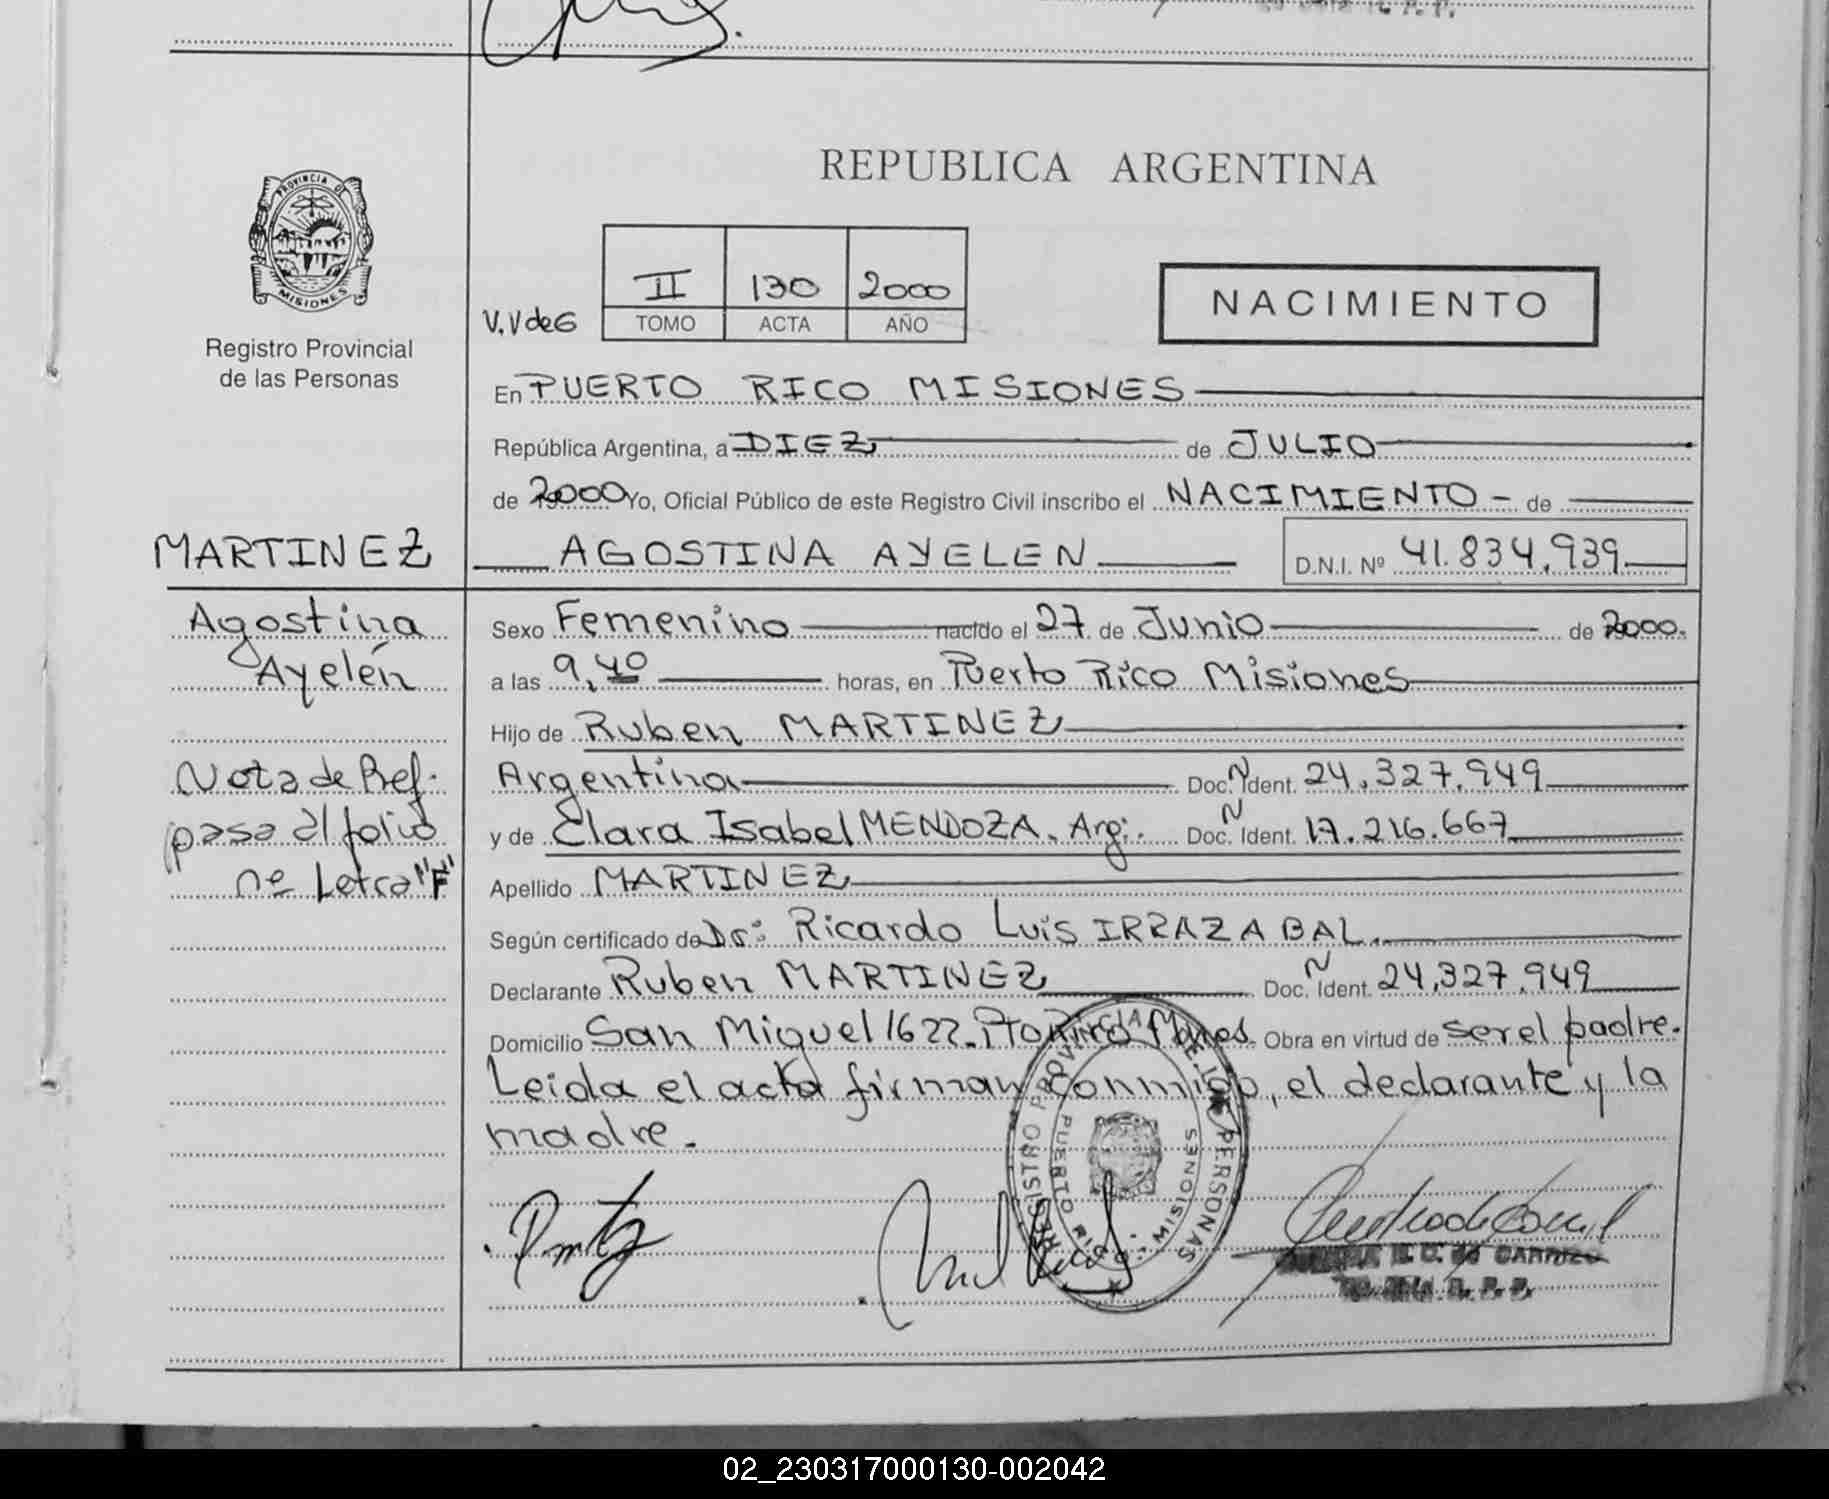 REPUBLICA ARGENTINA
PROVINCIA DE
MISIONES
Registro Provincial
de las Personas
V.V de G
II 130 2000
TOMO ACTA AÑO
NACIMIENTO
En PUERTO RICO MISIONES
República Argentina, a DIEZ de JULIO
de 2000 Yo, Oficial Público de este Registro Civil inscribo el NACIMIENTO - de
MARTINEZ AGOSTINA AYELEN D.N.I. Nº 41.834.939
Agostina
Ayelén
Nota de Ref.
pasa al folio
nº Letra "F"
Sexo Femenino nacido el 27 de Junio de 2000.
a las 9,40 horas, en Puerto Rico Misiones
Hijo de Ruben MARTINEZ
Argentina Doc. N Ident. 24.327.949
y de Clara Isabel MENDOZA. Arg:. Doc. N Ident. 17.216.667
Apellido MARTINEZ
Según certificado de Dr: Ricardo Luis IRRAZABAL.
Declarante Ruben MARTINEZ Doc. N Ident. 24.327.949
Domicilio San Miguel 1622. Pto Rico Mnes. Obra en virtud de ser el padre.
Leida el acta firman conmigo, el declarante y la
madre.
REGISTRO PROVINCIAL DE LAS PERSONAS
PUERTO RICO - MISIONES
02_230317000130-002042